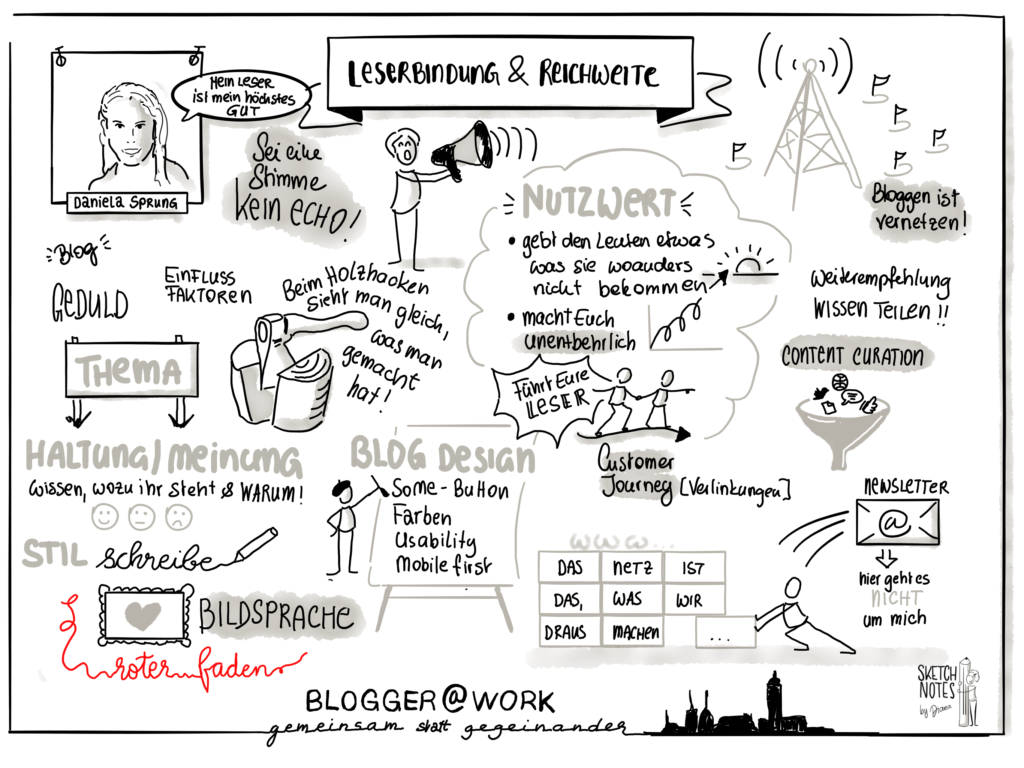 LESERBINDUNG & REICHWEITE
MEIN LESER
IST MEIN HÖCHSTES
GUT
DANIELA SPRUNG
Sei eine
Stimme
kein ECHO!
NUTZWERT
• gebt den Leuten etwas
was sie woanders
nicht bekommen
• macht Euch
unentbehrlich
Führt Eure
LESER
Customer
Journey [Verlinkungen]
Bloggen ist
vernetzen!
Weiterempfehlung
WISSEN TEILEN!!
CONTENT CURATION
Blog
GEDULD
EINFLUSS
FAKTOREN
Beim HOLZHACKEN
sieht man gleich,
was man
gemacht
hat!
THEMA
HALTUNG/MEINUNG
Wissen, wozu ihr steht & WARUM!
STIL schreibe
BILDSPRACHE
roter faden
BLOG DESIGN
SoMe-Button
Farben
Usability
Mobile first
WWW...
DAS NETZ IST
DAS, WAS WIR
DRAUS MACHEN ...
NEWSLETTER
@
hier geht es
NICHT
um mich
BLOGGER@WORK
gemeinsam statt gegeinander
SKETCH
NOTES
by Diana